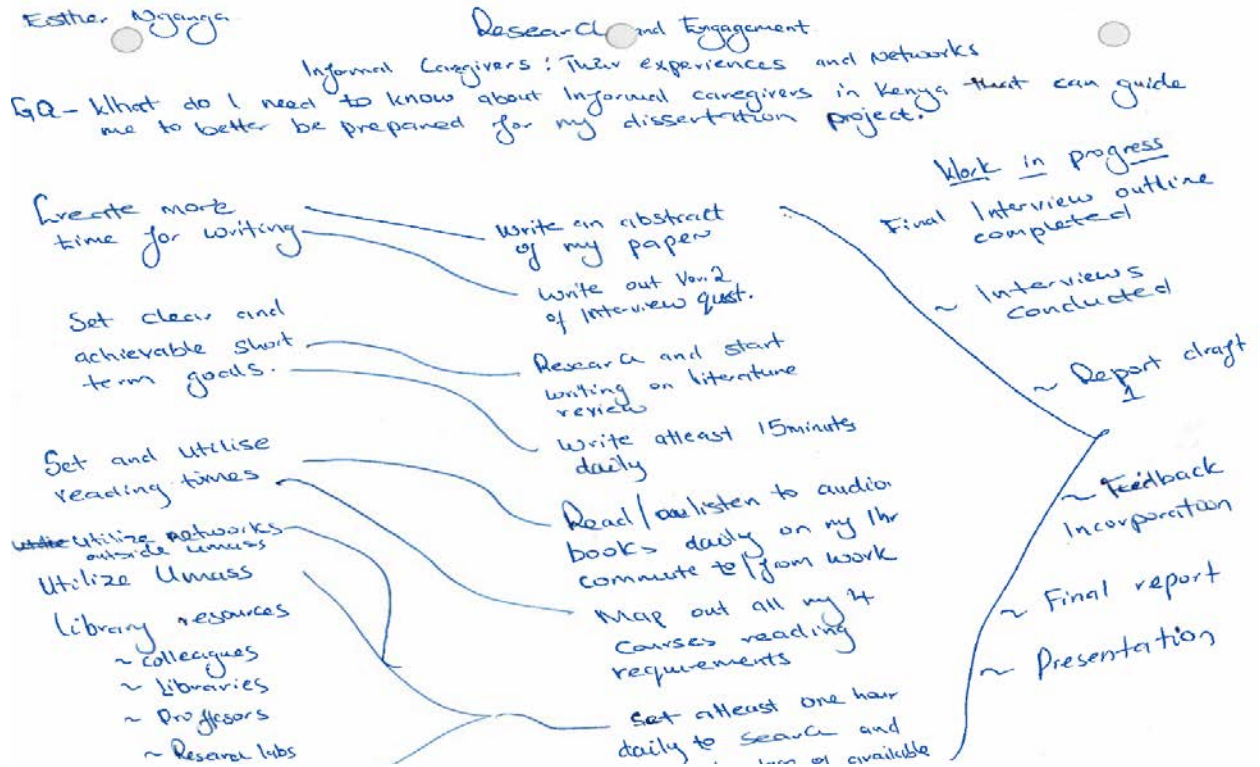 Esther Nganga
Research and Engagement
Informal Caregivers: Their experiences and Networks
GQ - What do I need to know about Informal caregivers in Kenya that can guide
me to better be prepared for my dissertation project.
Create more
time for writing
Set clear and
achievable short
term goals.
Set and utilise
reading times
Utilize networks
outside umass
Utilize Umass
Library resources
~ colleagues
~ Libraries
~ Proffesors
~ Research labs
Write an abstract
of my paper
Write out Ver. 2
of Interview quest.
Research and start
writing on literature
review
Write atleast 15minuts
daily
Read/listen to audio
books daily on my 1hr
commute to/from work
Map out all my 4
Courses reading
requirements
Set atleast one hour
daily to search and
of available
Work in progress
Final Interview outline
completed
~ Interviews
conducted
~ Report draft
1
~ Feedback
Incorporation
~ Final report
~ Presentation